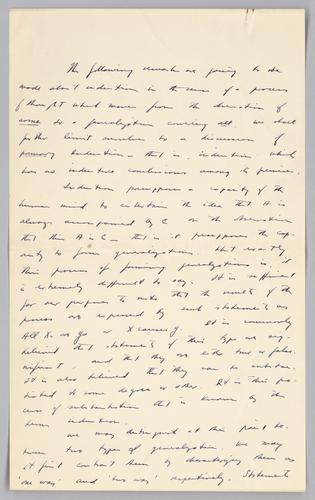 The following remarks are going to be
made about induction in the sense of a process
of thought which moves from the observation of
some to a generalization covering all. We shall
further limit ourselves to a discussion of
primary induction – that is, induction which
has no inductive conclusions among its premises.
Induction presupposes a capacity of the
human mind to entertain the idea that A is
always accompanied by C on the observation
that this A is C – that is it presupposes the cap-
acity to form generalizations. What exactly
this process of forming generalizations is, it
is extremely difficult to say. It is sufficient
for our purposes to note that the results of the
process are expressed by such statements as
All Xs are Ys or X causes Y. It is commonly
believed that statements of this type are sig-
nificant, and that they are either true or false.
It is also believed that they can be substan-
tiated to some degree or other. It is this pro-
cess of substantiation that is known by the
term induction.
We may distinguish at this point be-
tween two types of generalization. We may
at first contrast them by characterizing them as
'one way' and 'two way' respectively. Statements